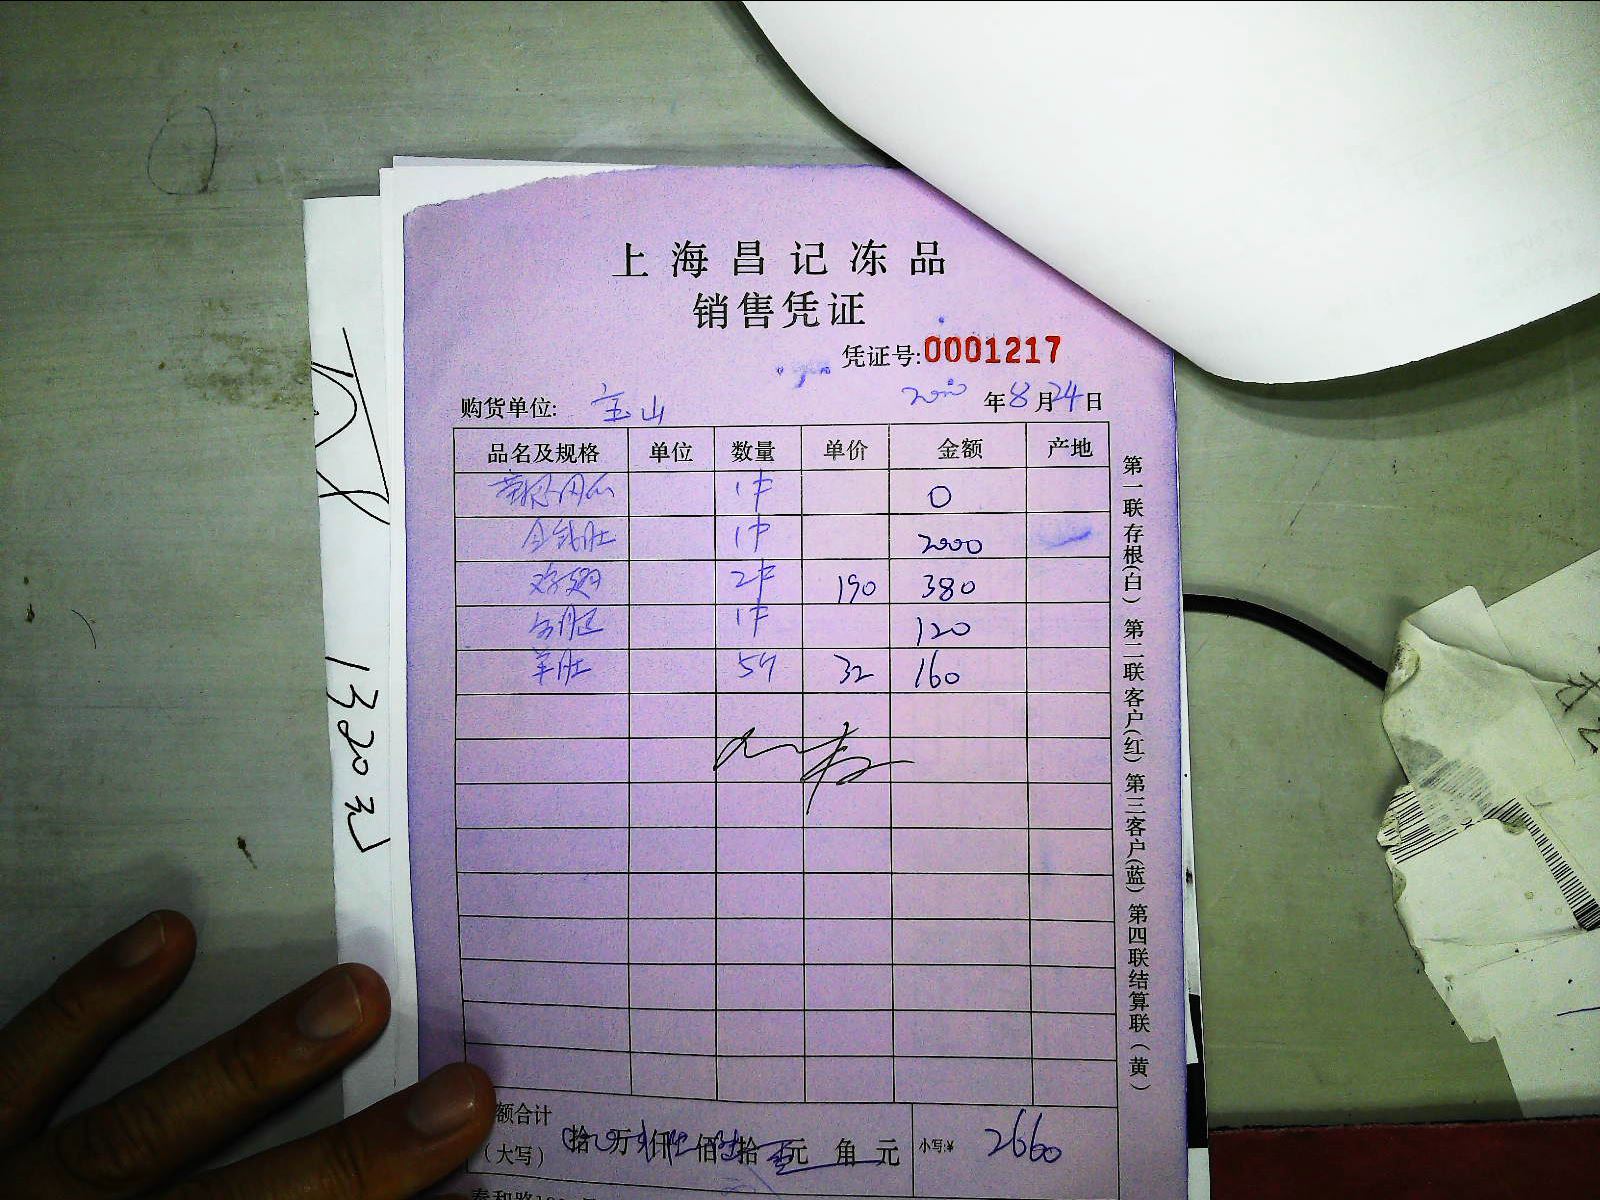 上海昌记冻品
销售凭证
凭证号:0001217
购货单位: 宝山 2020年8月24日
品名及规格 单位 数量 单价 金额 产地
1件 0
金钱肚 1件 2000
鸡翅 2件 190 380
1件 120
羊肚 5个 32 160
额合计
(大写) 拾 万 仟 佰 拾 元 角 元 小写:¥ 2660
第一联存根(白) 第二联客户(红) 第三客户(蓝) 第四联结算联(黄)
1320元